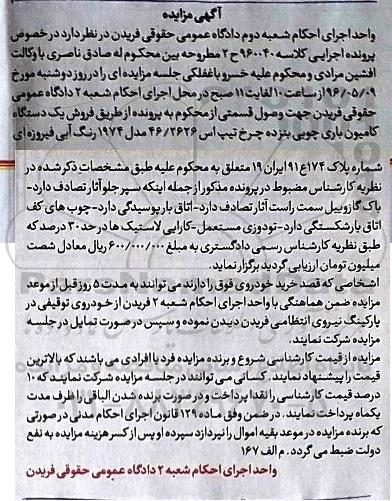 آگهی مزایده
واحد اجرای احکام شعبه دوم دادگاه عمومی حقوقی فریدن در نظر دارد در خصوص
پرونده اجرایی کلاسه ۹۶۰۰۴۰ ح ۲ مطروحه بین محکوم له صادق ناصری با وکالت
افشین مرادی و محکوم علیه خسرو باغفلکی جلسه مزایده ای را در روز دوشنبه مورخ
۹۶/۰۵/۰۹ از ساعت ۱۰ لغایت ۱۱ صبح در محل اجرای احکام شعبه ۲ دادگاه عمومی
حقوقی فریدن جهت وصول قسمتی از محکوم به پرونده از طریق فروش یک دستگاه
کامیون باری چوبی بنز ده چرخ تیپ اس ۴۶/۲۶۲۶ مدل ۱۹۷۴ رنگ آبی فیروزه ای
شماره پلاک ۱۷۴ع۹۱ ایران ۱۹ متعلق به محکوم علیه طبق مشخصات ذکر شده در
نظریه کارشناس مضبوط در پرونده مذکور از جمله اینکه سپر جلو آثار تصادف دارد-
باک گازوییل سمت راست آثار تصادف دارد-اتاق بار پوسیدگی دارد-چوب های کف
اتاق بار شکستگی دارد-تودوزی مستعمل-کارایی لاستیک ها در حد ۳۰ درصد که
طبق نظریه کارشناس رسمی دادگستری به مبلغ ۶۰۰/۰۰۰/۰۰۰ ریال معادل شصت
میلیون تومان ارزیابی گردید برگزار نماید.
اشخاصی که قصد خرید خودروی فوق را دارند می توانند به مدت ۵ روز قبل از موعد
مزایده ضمن هماهنگی با واحد اجرای احکام شعبه ۲ فریدن از خودروی توقیفی در
پارکینگ نیروی انتظامی فریدن دیدن نموده و سپس در صورت تمایل در جلسه
مزایده شرکت نمایند.
مزایده از قیمت کارشناسی شروع و برنده مزایده فرد یا افرادی می باشند که بالاترین
قیمت را پیشنهاد نمایند. کسانی می توانند در جلسه مزایده شرکت نمایند که ۱۰
درصد قیمت کارشناسی را نقدا پرداخت و در صورت برنده شدن الباقی را ظرف مدت
یکماه پرداخت نمایند. در ضمن وفق ماده ۱۲۹ قانون اجرای احکام مدنی در صورتی
که برنده مزایده در موعد بقیه اموال را نپردازد سپرده او پس از کسر هزینه مزایده به نفع
دولت ضبط می گردد. م الف ۱۶۷
واحد اجرای احکام شعبه ۲ دادگاه عمومی حقوقی فریدن